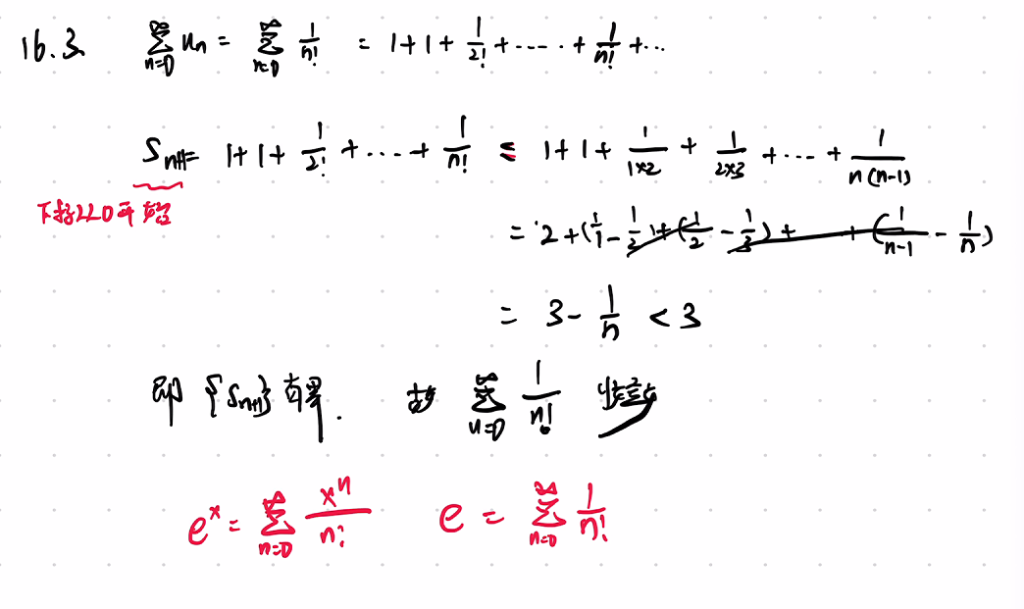 16.3 ∑_{n=0}^{∞} u_n = ∑_{n=0}^{∞} 1/n! = 1+1+1/2!+····+1/n!+···
S_{n+1} = 1+1+1/2!+····+1/n! ≤ 1+1+1/(1×2)+1/(2×3)+···+1/(n(n-1))
下标以0开始
= 2+(1/1-1/2)+(1/2-1/3)+ +(1/(n-1)-1/n)
= 3-1/n <3
即 {S_{n+1}}有界. 故 ∑_{n=0}^{∞} 1/n! 收敛
e^x = ∑_{n=0}^{∞} x^n/n! e = ∑_{n=0}^{∞} 1/n!